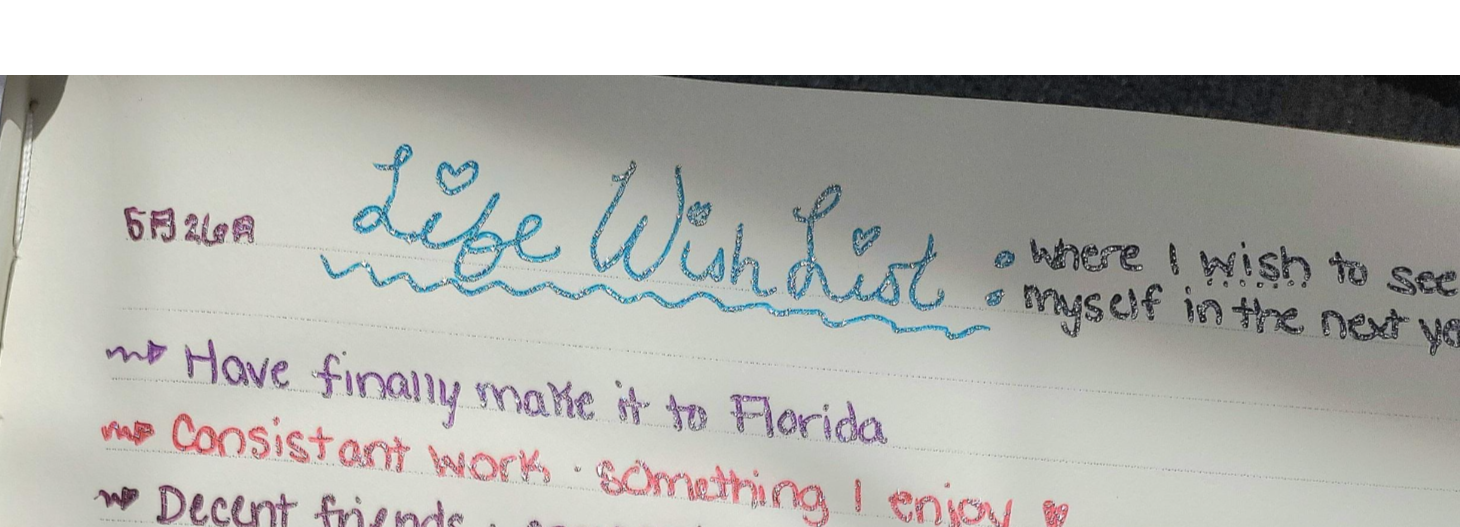 5月26日
Life Wish List : where I wish to see
myself in the next
Have finally make it to Florida
Consistant work · something I enjoy ♥
Decent friends